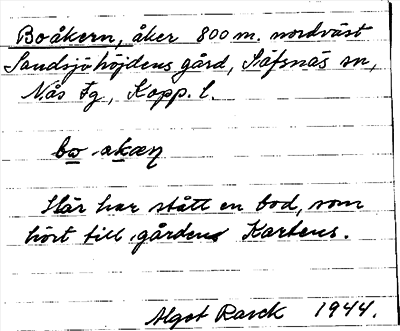 Boåkern, åker 800 m. nordväst
Sandsjöhöjdens gård, Säfsnäs sn,
Nås tg, Kopp. l.
bω akæɳ
Här har stått en bod, som
hört till gården Kartens.
Algot Rasck 1944.